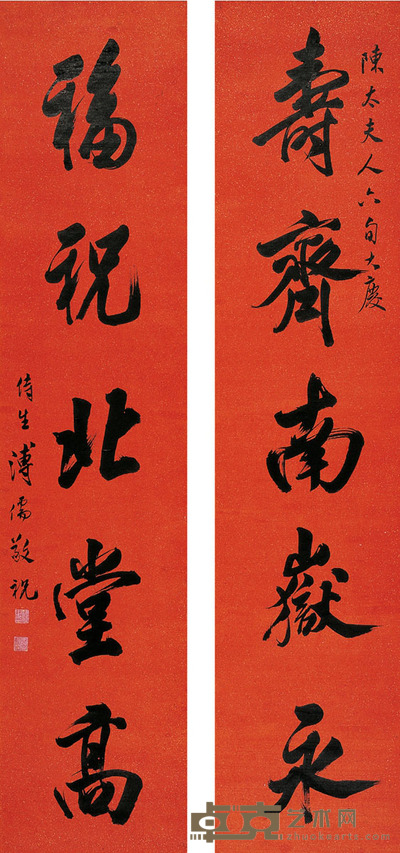 陳太夫人六旬大慶
壽齊南嶽永
福祝北堂高
侍生溥儒敬祝
卓克艺术网